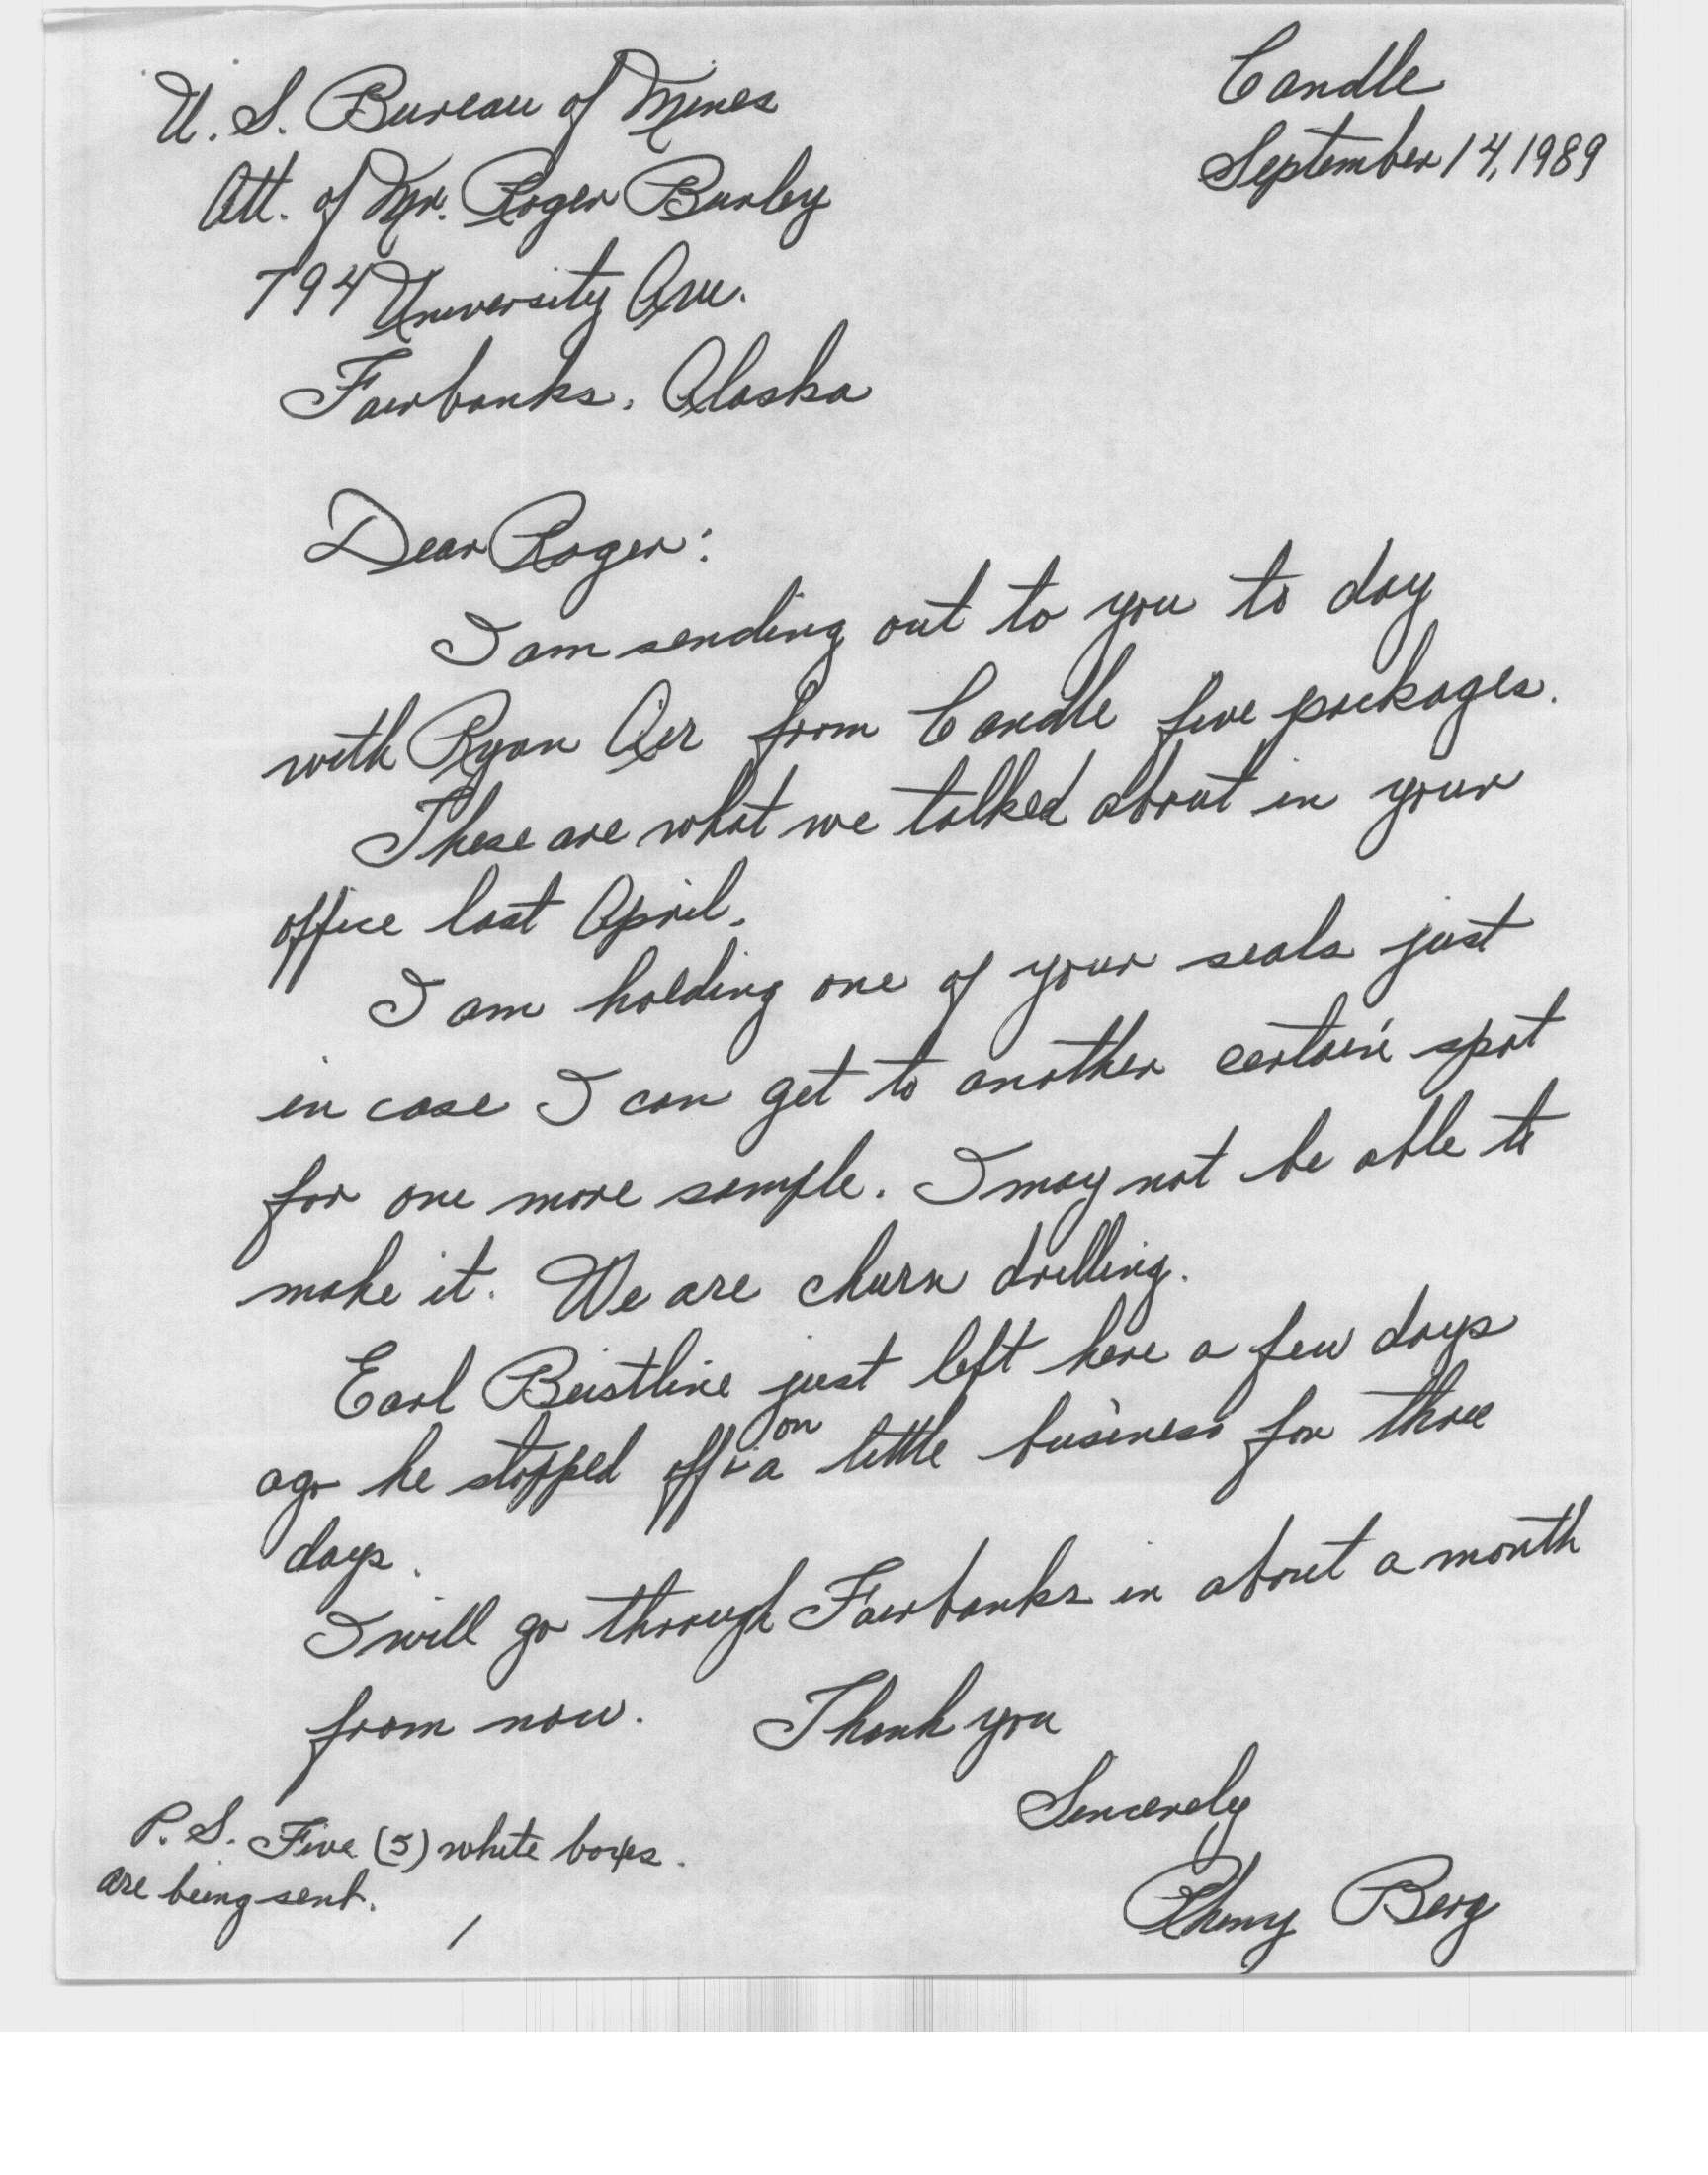 Candle
September 14, 1989
U. S. Bureau of Mines
Att. of Mr. Roger Burley
794 University Ave.
Fairbanks, Alaska
Dear Roger:
I am sending out to you to day
with Ryan Air from Candle five packages.
These are what we talked about in your
office last April.
I am holding one of your seals just
in case I can get to another certain spot
for one more sample. I may not be able to
make it. We are churn drilling.
Earl Beistline just left here a few days
ago he stopped off on a little business for three
days.
I will go through Fairbanks in about a month
from now. Thank you
Sincerely
Berg
P.S. Five (5) white boxes.
are being sent.